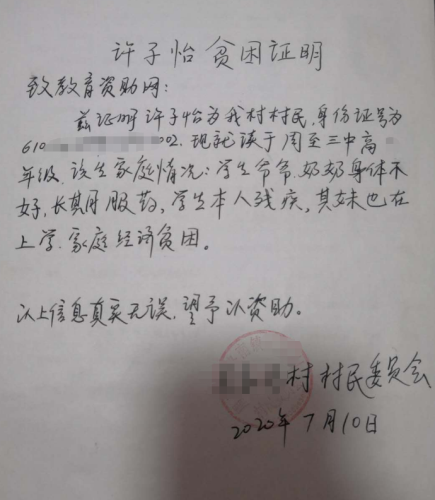 许子怡贫困证明
致教育资助网：
兹证明许子怡为我村村民，身份证号为
610 002. 现就读于周至三中高一
年级，该生家庭情况：学生爷爷、奶奶身体不
好，长期服药，学生本人残疾，其妹也在
上学，家庭经济贫困。
以上信息真实无误，望予以资助。
村村民委员会
2020年7月10日